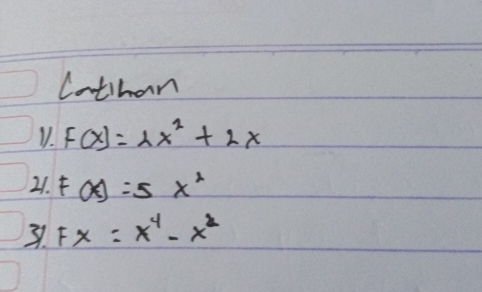 Latihan
1). F(x) = 2x² + 2x
2). F(x) = 5 x²
3). Fx = x⁴ - x²